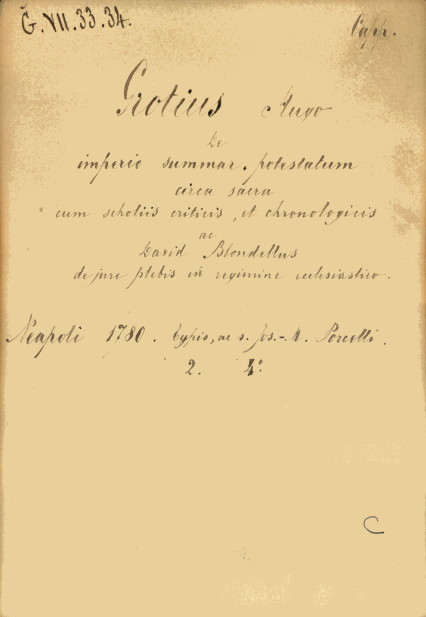 Ğ.VII.33.34.
Capp.
Grotius Hugo
De
imperio summar. potestatum
circa sacra
cum scholiis criticis, et chronologicis
ac
David Blondellus
de jure plebis in regimine ecclesiastico.
Neapoli 1780. typis, ac s. Jos.-M. Porcelli.
2. 4°.
C